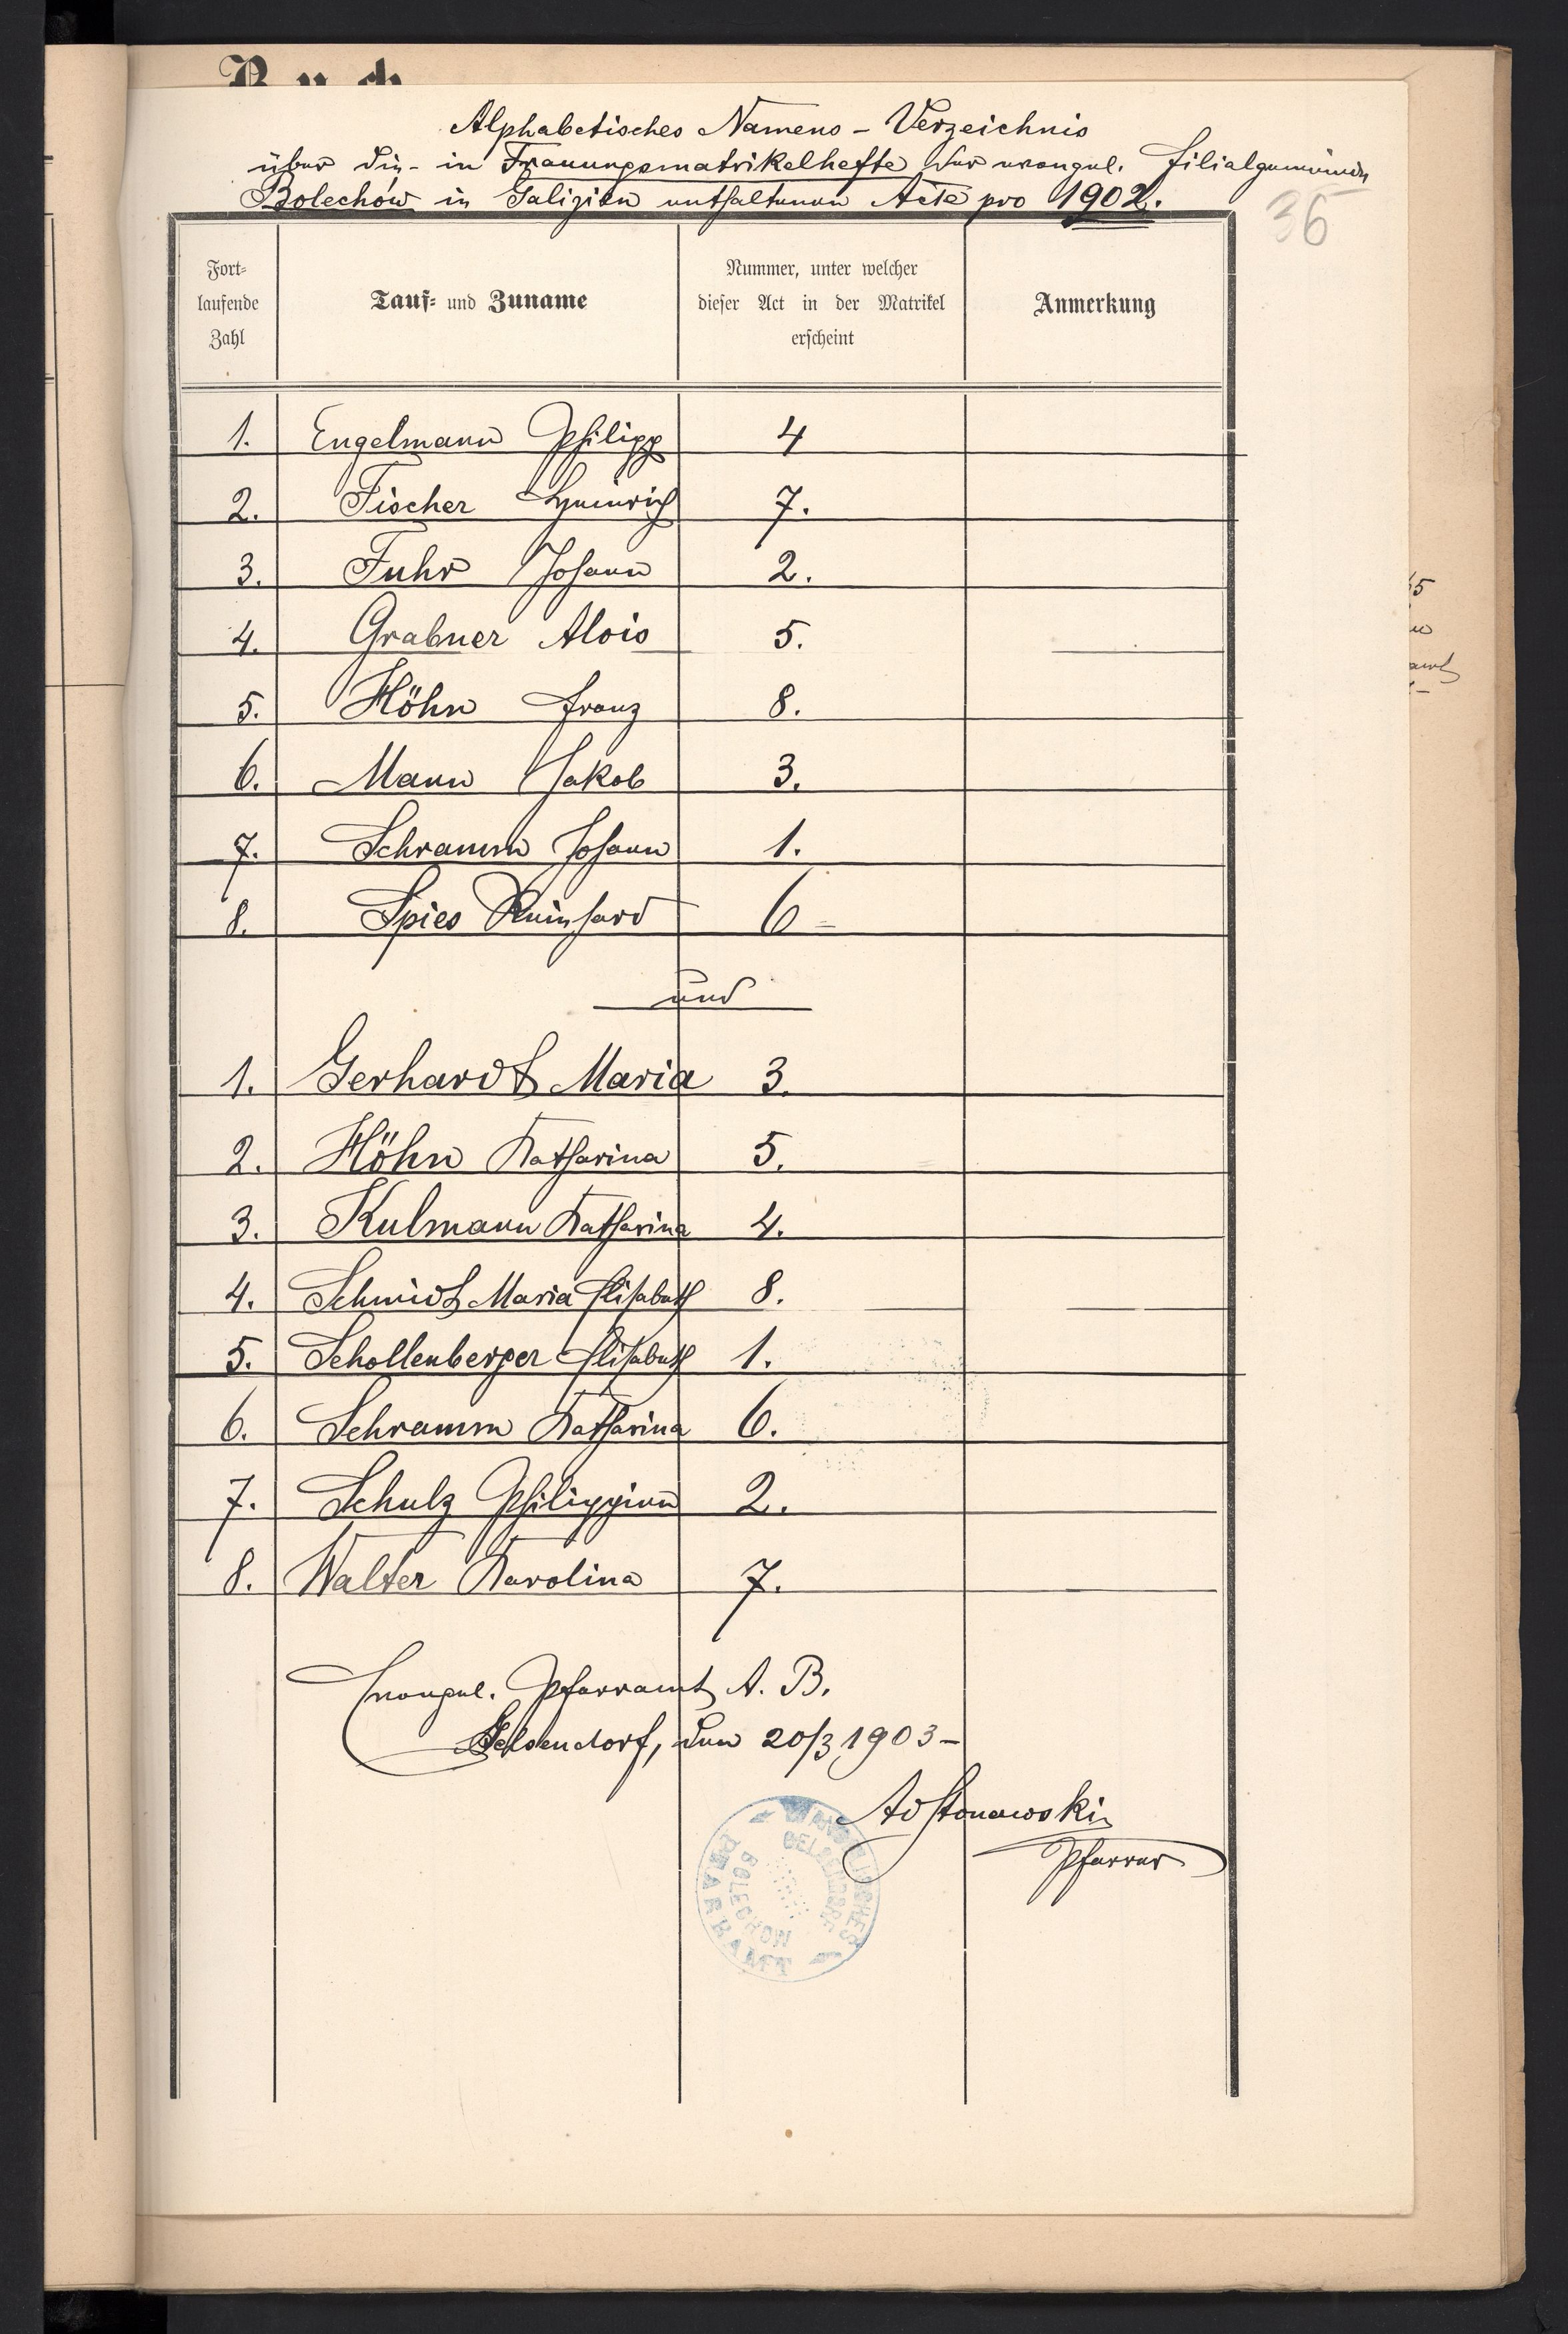 Alphabetisches Namens-Verzeichnis
über die - in Trauungsmatrikelhefte der evangel. Filialgemeinde
Bolechów in Galizien enthaltenen Acte pro 1902.
36
Fort-
laufende
Zahl
Tauf- und Zuname
Nummer, unter welcher
dieser Act in der Matrikel
erscheint
Anmerkung
1. Engelmann Philipp 4
2. Fischer Heinrich 7.
3. Fuhr Johann 2.
4. Grabner Alois 5.
5. Höhn Franz 8.
6. Mann Jakob 3.
7. Schramm Johann 1.
8. Spies Reinhard 6
und
1. Gerhardt Maria 3.
2. Höhn Katharina 5.
3. Kulmann Katharina 4.
4. Schmidt Maria Elisabeth 8.
5. Schollenberger Elisabeth 1.
6. Schramm Katharina 6.
7. Schulz Philippine 2.
8. Walter Karolina 7.
Evangel. Pfarramt A. B.
Gelsendorf, den 20/3 1903-
Ad Stonawski
Pfarrer
EVANGELISCHES PFARRAMT
GELSENDORF BOLECHOW